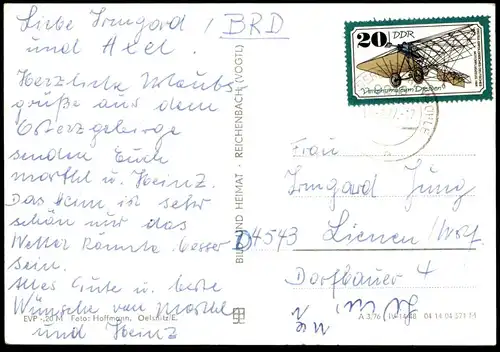 Liebe Irmgard / BRD
und Axel.
Herzliche Urlaubs
grüße aus dem
Osterzgebirge
senden Euch
Marthel und Heinz.
Das Heim ist sehr
schön nur das
Wetter könnte besser
sein.
Alles Gute u. beste
Wünsche von Marthel
und Heinz
EVP -,20 M Foto: Hoffmann, Oelsnitz/E.
BILD UND HEIMAT · REICHENBACH (VOGTL)
20 DDR
Verkehrsmuseum Dresden
Frau
Irmgard Jung
D 4543 Lienen/Wstf.
Dorfbauer 4
A 3/76 IV-14-48 04 14 04 371 14